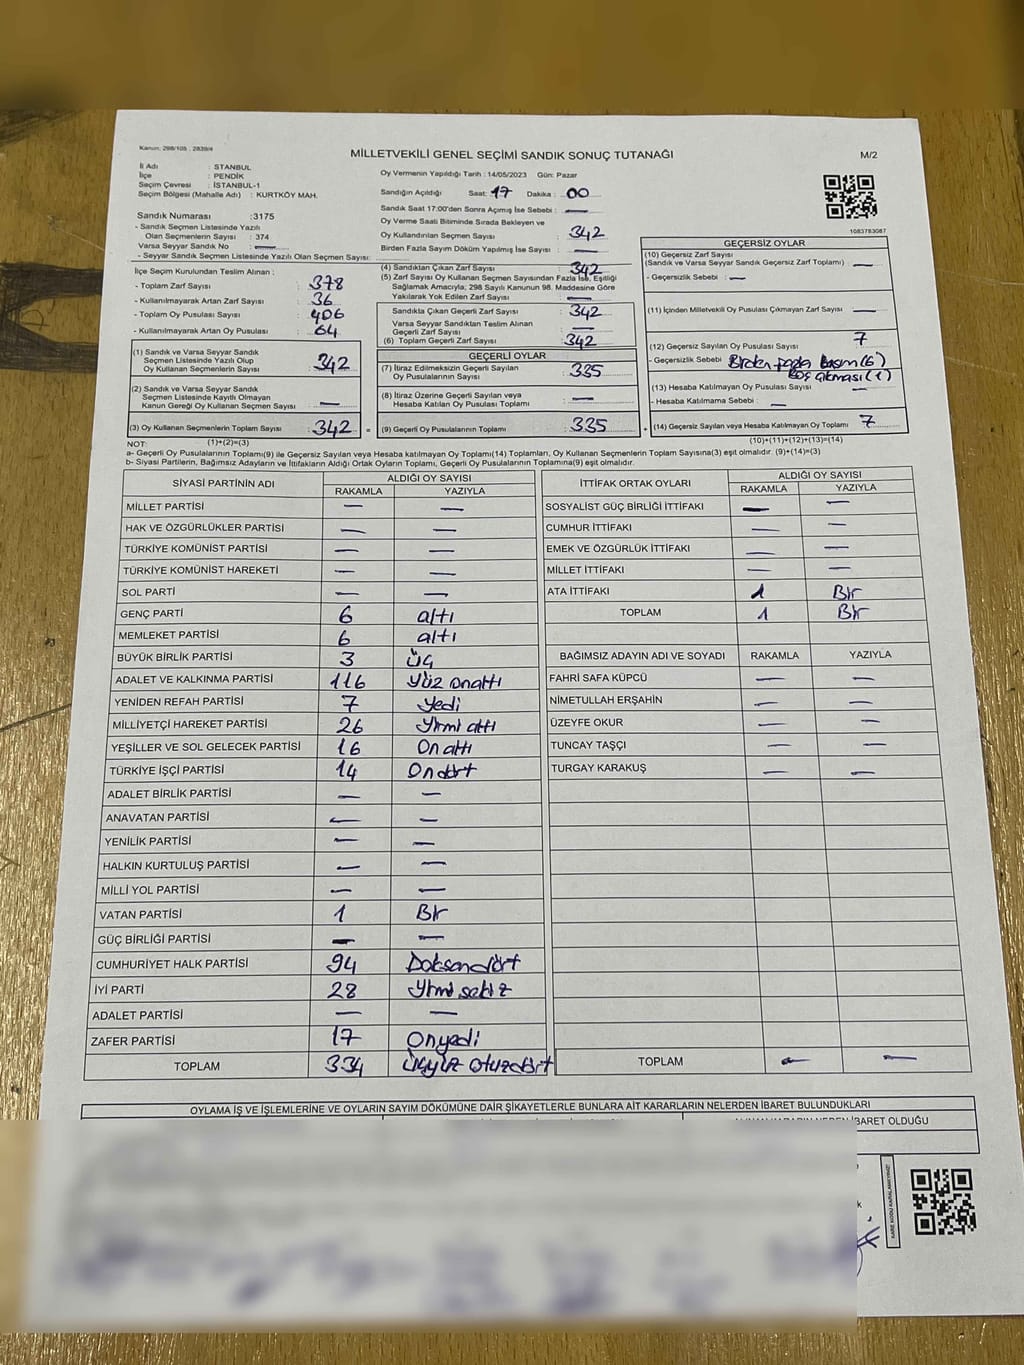 Kanun: 298/105 , 2839/4
MİLLETVEKİLİ GENEL SEÇİMİ SANDIK SONUÇ TUTANAĞI
M/2
İl Adı : STANBUL
İlçe : PENDİK
Seçim Çevresi : İSTANBUL-1
Seçim Bölgesi (Mahalle Adı) : KURTKÖY MAH.
Sandık Numarası :3175
- Sandık Seçmen Listesinde Yazılı
Olan Seçmenlerin Sayısı : 374
Varsa Seyyar Sandık No : —
- Seyyar Sandık Seçmen Listesinde Yazılı Olan Seçmen Sayısı:
İlçe Seçim Kurulundan Teslim Alınan :
- Toplam Zarf Sayısı : 378
- Kullanılmayarak Artan Zarf Sayısı : 36
- Toplam Oy Pusulası Sayısı : 406
- Kullanılmayarak Artan Oy Pusulası : 64
(1) Sandık ve Varsa Seyyar Sandık
Seçmen Listesinde Yazılı Olup
Oy Kullanan Seçmen Sayısı : 342
(2) Sandık ve Varsa Seyyar Sandık
Seçmen Listesinde Kayıtlı Olmayan
Kanun Gereği Oy Kullanan Seçmen Sayısı : —
(3) Oy Kullanan Seçmenlerin Toplam Sayısı : 342
(1)+(2)=(3)
Oy Vermenin Yapıldığı Tarih : 14/05/2023 Gün: Pazar
Sandığın Açıldığı Saat: 17 Dakika : 00
Sandık Saat 17:00'den Sonra Açımış İse Sebebi : —
Oy Verme Saati Bitiminde Sırada Bekleyen ve
Oy Kullandırılan Seçmen Sayısı : 342
Birden Fazla Sayım Döküm Yapılmış İse Sayısı : —
(4) Sandıktan Çıkan Zarf Sayısı : 342
(5) Zarf Sayısı Oy Kullanan Seçmen Sayısından Fazla İse, Eşitliği
Sağlamak Amacıyla, 298 Sayılı Kanunun 98. Maddesine Göre
Yakılarak Yok Edilen Zarf Sayısı : —
Sandıkta Çıkan Geçerli Zarf Sayısı : 342
Varsa Seyyar Sandıktan Teslim Alınan
Geçerli Zarf Sayısı : —
(6) Toplam Geçerli Zarf Sayısı : 342
GEÇERLİ OYLAR
(7) İtiraz Edilmeksizin Geçerli Sayılan
Oy Pusulalarının Sayısı : 335
(8) İtiraz Üzerine Geçerli Sayılan veya
Hesaba Katılan Oy Pusulası Toplamı : —
= (9) Geçerli Oy Pusulalarının Toplamı : 335 +
1083783087
GEÇERSİZ OYLAR
(10) Geçersiz Zarf Sayısı
(Sandık ve Varsa Seyyar Sandık Geçersiz Zarf Toplamı) : —
- Geçersizlik Sebebi : —
(11) İçinden Milletvekili Oy Pusulası Çıkmayan Zarf Sayısı : —
(12) Geçersiz Sayılan Oy Pusulası Sayısı : 7
- Geçersizlik Sebebi : Birden fazla basım (6)
Boş çıkması (1)
(13) Hesaba Katılmayan Oy Pusulası Sayısı : —
- Hesaba Katılmama Sebebi : —
(14) Geçersiz Sayılan veya Hesaba Katılmayan Oy Toplamı : 7
(10)+(11)+(12)+(13)=(14)
NOT:
a- Geçerli Oy Pusulalarının Toplamı(9) ile Geçersiz Sayılan veya Hesaba katılmayan Oy Toplamı(14) Toplamları, Oy Kullanan Seçmenlerin Toplam Sayısına(3) eşit olmalıdır. (9)+(14)=(3)
b- Siyasi Partilerin, Bağımsız Adayların ve İttifakların Aldığı Ortak Oyların Toplamı, Geçerli Oy Pusulalarının Toplamına(9) eşit olmalıdır.
SİYASİ PARTİNİN ADI ALDIĞI OY SAYISI
RAKAMLA YAZIYLA
MİLLET PARTİSİ — —
HAK VE ÖZGÜRLÜKLER PARTİSİ — —
TÜRKİYE KOMÜNİST PARTİSİ — —
TÜRKİYE KOMÜNİST HAREKETİ — —
SOL PARTİ — —
GENÇ PARTİ 6 altı
MEMLEKET PARTİSİ 6 altı
BÜYÜK BİRLİK PARTİSİ 3 üç
ADALET VE KALKINMA PARTİSİ 116 yüz onaltı
YENİDEN REFAH PARTİSİ 7 yedi
MİLLİYETÇİ HAREKET PARTİSİ 26 yirmi altı
YEŞİLLER VE SOL GELECEK PARTİSİ 16 Onaltı
TÜRKİYE İŞÇİ PARTİSİ 14 Ondört
ADALET BİRLİK PARTİSİ — —
ANAVATAN PARTİSİ — —
YENİLİK PARTİSİ — —
HALKIN KURTULUŞ PARTİSİ — —
MİLLİ YOL PARTİSİ — —
VATAN PARTİSİ 1 Bir
GÜÇ BİRLİĞİ PARTİSİ — —
CUMHURİYET HALK PARTİSİ 94 Doksandört
İYİ PARTİ 28 yirmi sekiz
ADALET PARTİSİ — —
ZAFER PARTİSİ 17 Onyedi
TOPLAM 334 üçyüz otuzdört
İTTİFAK ORTAK OYLARI ALDIĞI OY SAYISI
RAKAMLA YAZIYLA
SOSYALİST GÜÇ BİRLİĞİ İTTİFAKI — —
CUMHUR İTTİFAKI — —
EMEK VE ÖZGÜRLÜK İTTİFAKI — —
MİLLET İTTİFAKI — —
ATA İTTİFAKI 1 Bir
TOPLAM 1 Bir
BAĞIMSIZ ADAYIN ADI VE SOYADI RAKAMLA YAZIYLA
FAHRİ SAFA KÜPCÜ — —
NİMETULLAH ERŞAHİN — —
ÜZEYFE OKUR — —
TUNCAY TAŞÇI — —
TURGAY KARAKUŞ — —
TOPLAM — —
OYLAMA İŞ VE İŞLEMLERİNE VE OYLARIN SAYIM DÖKÜMÜNE DAİR ŞİKAYETLERLE BUNLARA AİT KARARLARIN NELERDEN İBARET BULUNDUKLARI
İBARET OLDUĞU
KARE KODU KARALAMAYINIZ!